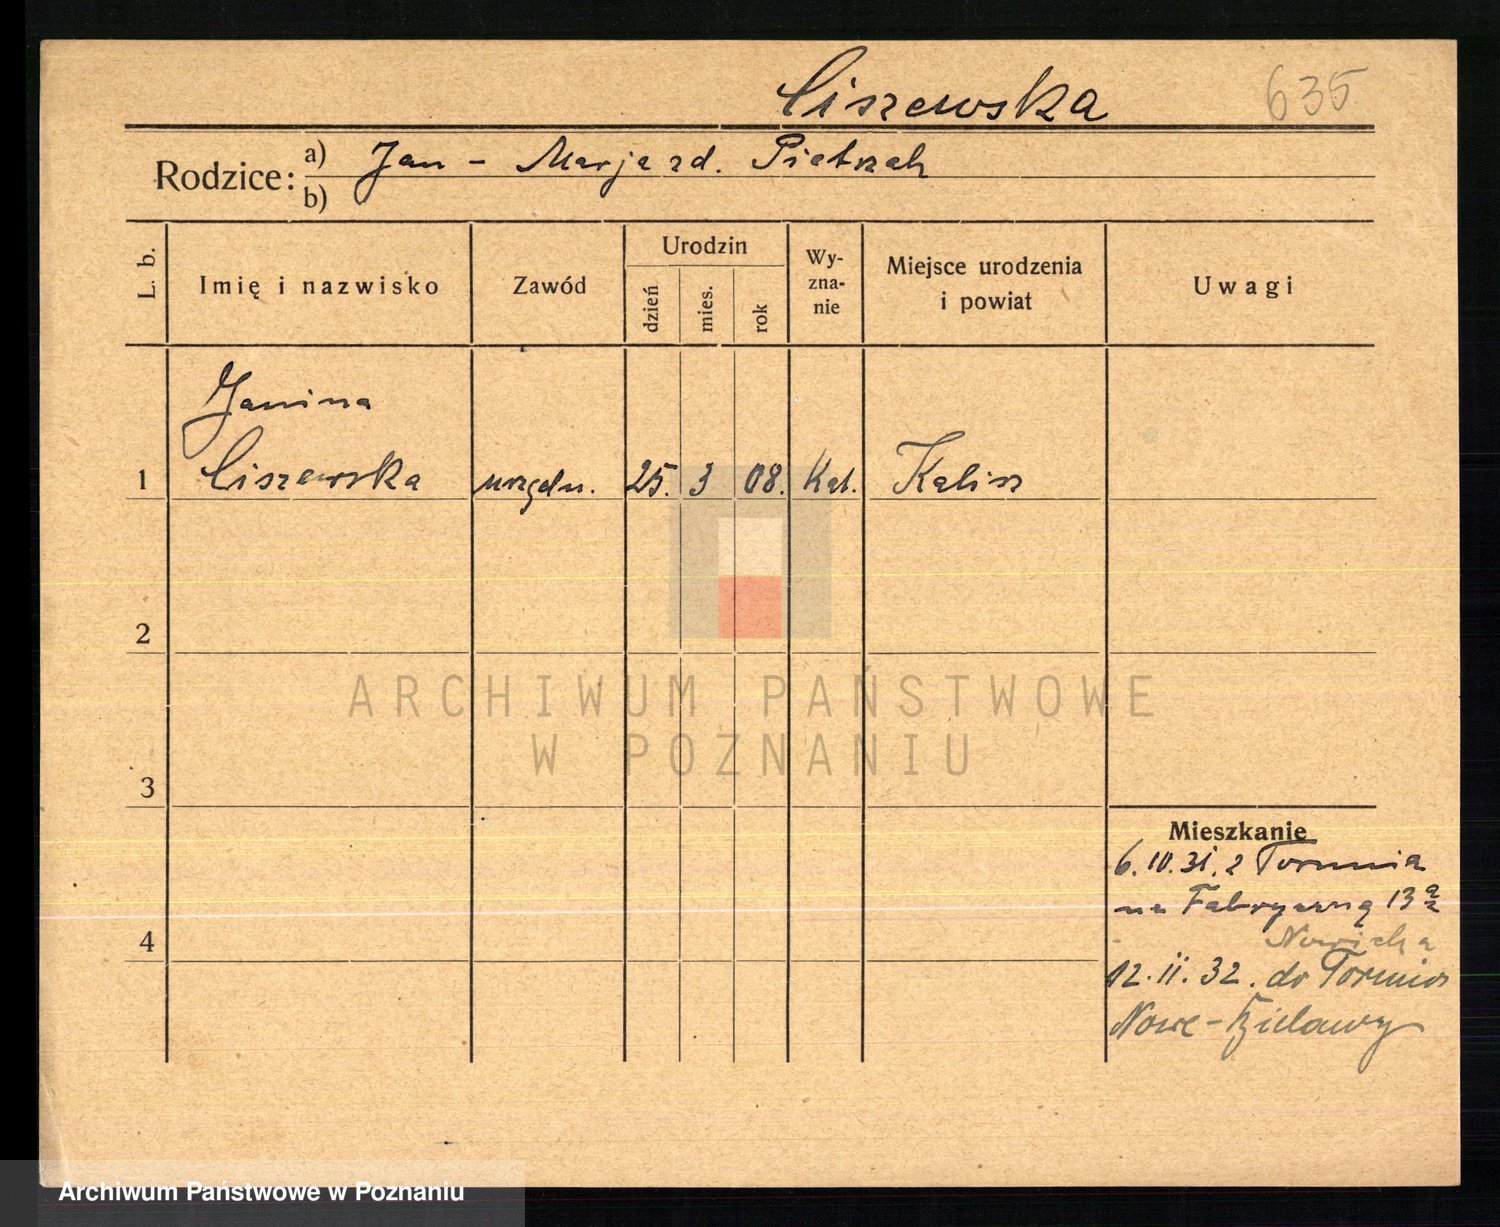 Ciszewska 635
Rodzice: a) Jan - Marja zd. Pietrzak
b)
L. b. Imię i nazwisko Zawód Urodzin dzień mies. rok Wy-zna-nie Miejsce urodzenia i powiat Uwagi
Janina
1 Ciszewska urzędn. 25. 3 08. Kat. Kalisz
2
ARCHIWUM PAŃSTWOWE
W POZNANIU
3
Mieszkanie
6.10.31. z Torunia
na Fabryczną 13
4
Nowicka
12.11.32. do Torunia
Nowe-Bielawy
Archiwum Państwowe w Poznaniu